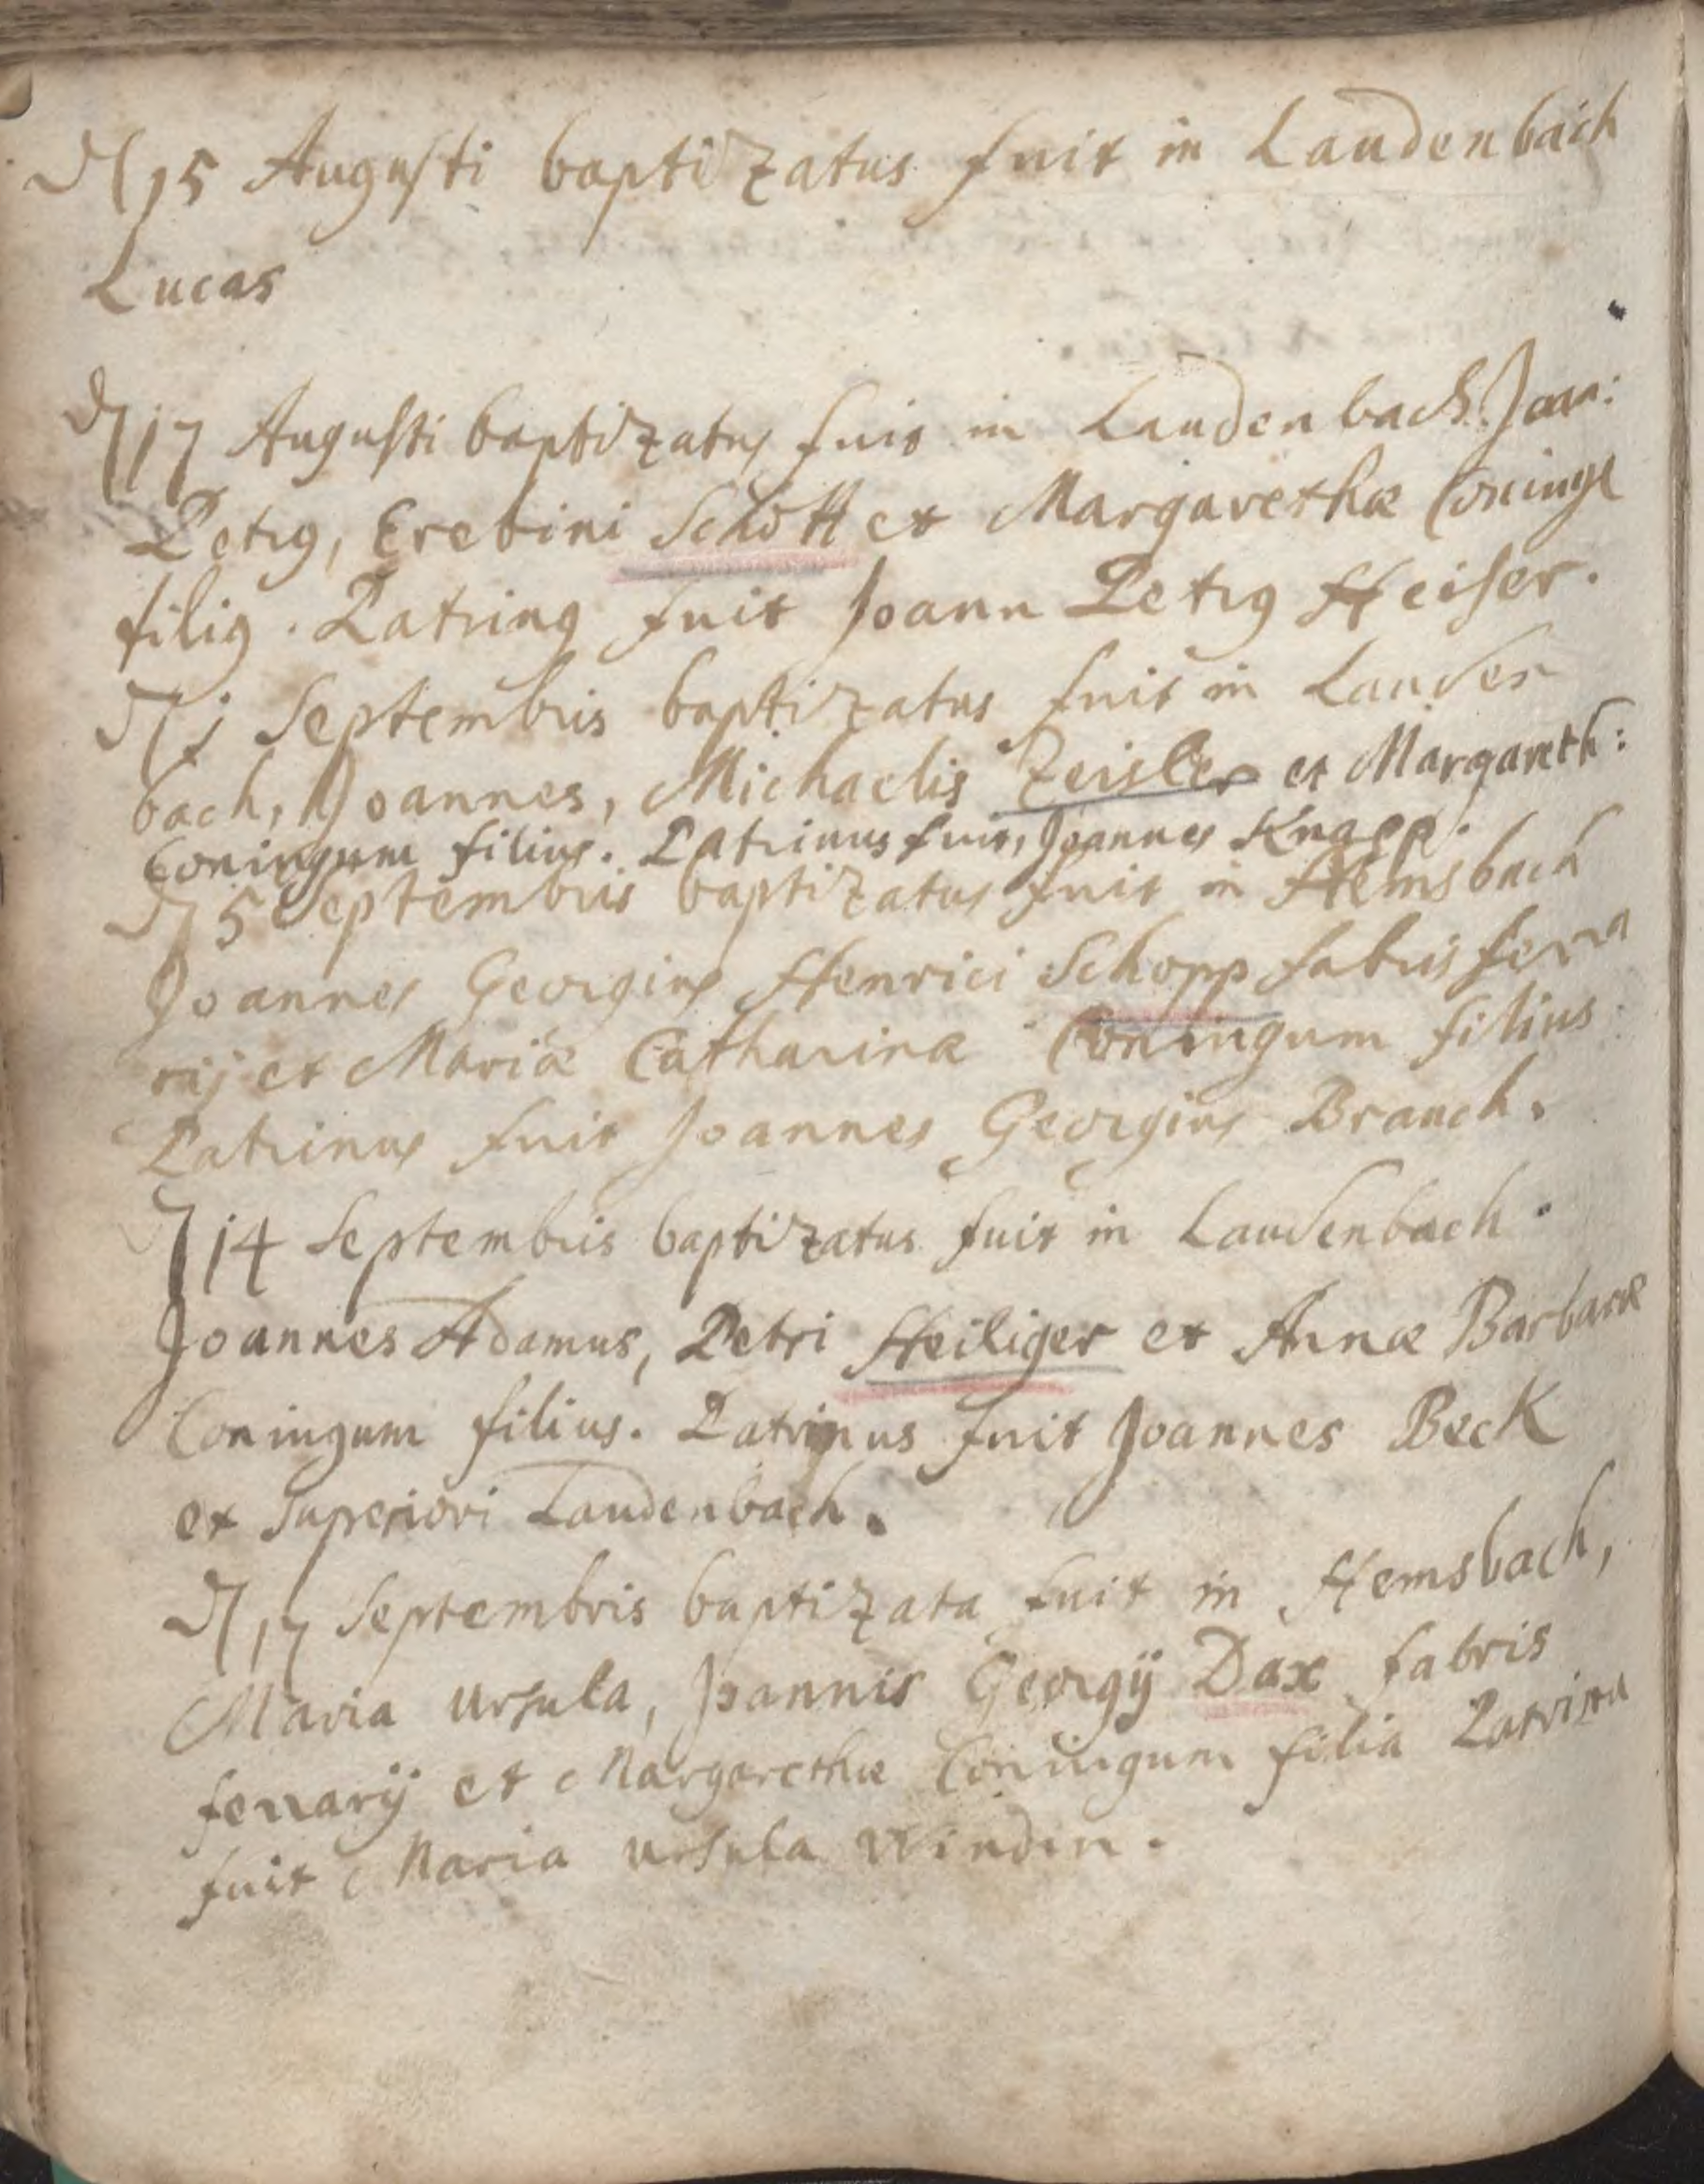 D 15 Augusti baptizatus fuit in Laudenbach
Lucas
D 17 Augusti baptizatus fuit in Laudenbach Joan:
Petrus, Erebini Schott et Margarethæ Coningū
filius. Patrinus fuit Joann Petrus Heiser.
D 1 Septembris baptizatus fuit in Lauden
bach, Joannes, Michaelis Zeisler et Margareth:
Coningum filius. Patrinus fuit, Joannes Knapp.
D 5 Septembris baptizatus fuit in Hemsbach
Joannes Georgius Henrici Schopp fabris ferra
rij et Mariæ Catharinæ Coningum filius
Patrinus fuit Joannes Georgius Brauch.
D 14 Septembris baptizatus fuit in Laudenbach.
Joannes Adamus, Petri Heiliger et Annæ Barbaræ
Coningum filius. Patrinus fuit Joannes Beck
ex superiori Laudenbach.
D 17 Septembris baptizata fuit in Hemsbach,
Maria Ursula, Joannis Georgij Dax fabris
ferrarij et Margarethæ Coningum filia Patrina
fuit Maria Ursula Windin.